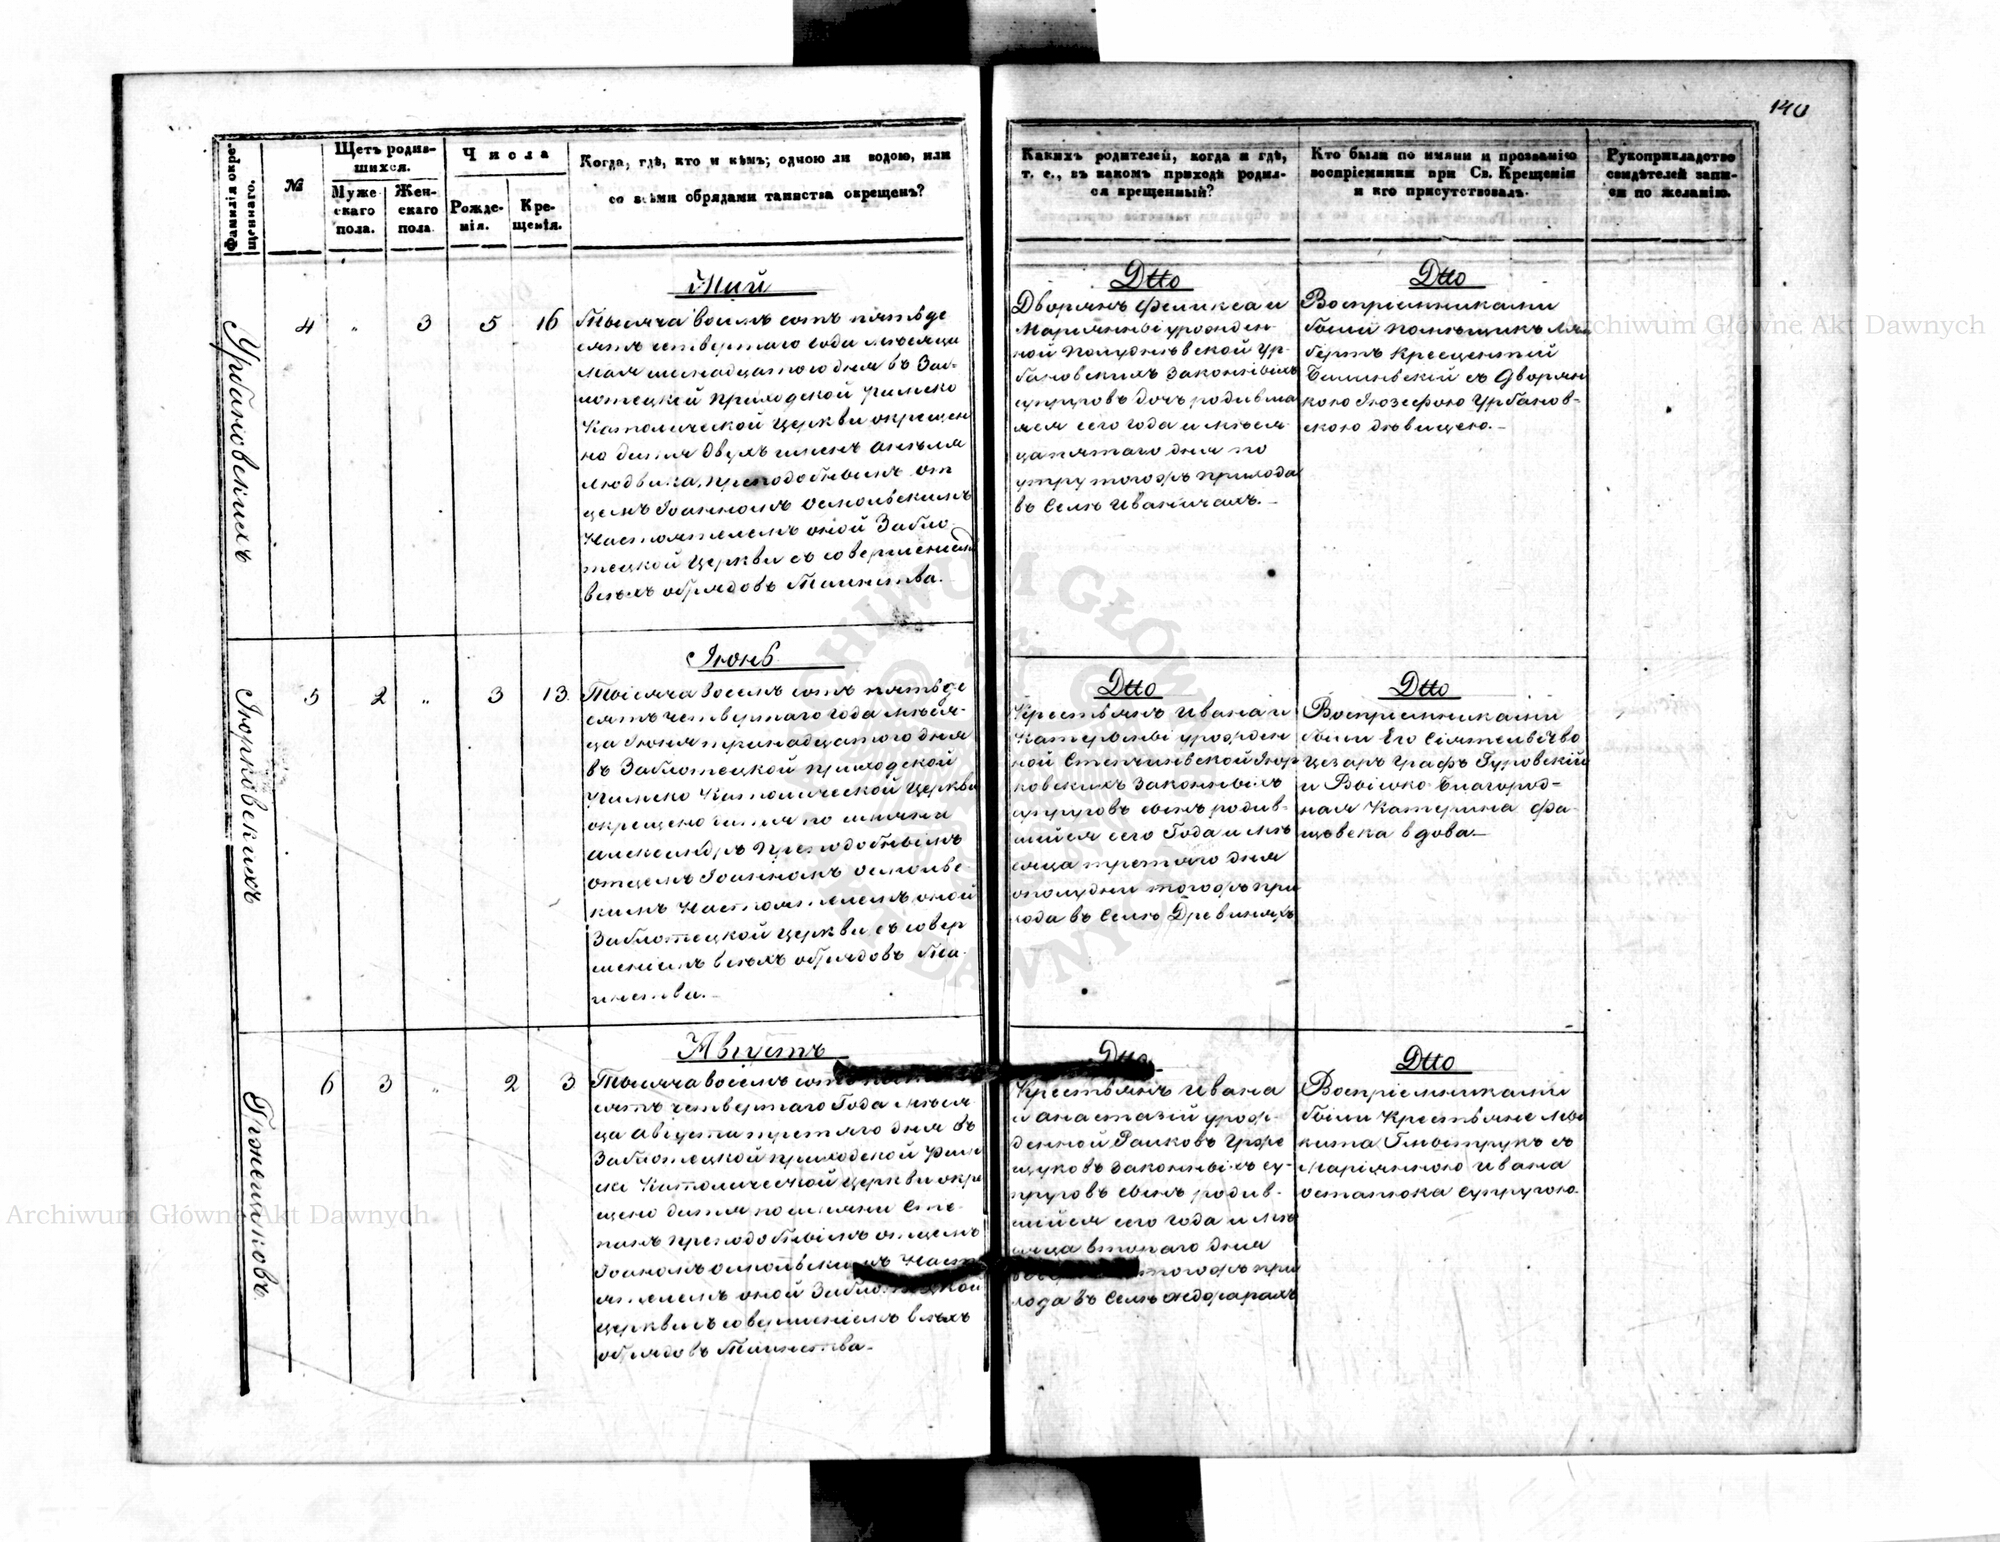 140
Фамилія окре-
щеннаго.
№
Щетъ родив-
шихся.
Муже-
скаго
пола.
Жен-
скаго
пола.
Числа
Рожде-
нія.
Кре-
щенія.
Когда, гдѣ, кто и кѣмъ; одною ли водою, или
со всѣми обрядами таинства окрещенъ?
Каких родителей, когда и гдѣ,
т. е., въ какомъ приходѣ родил-
ся крещенный?
Кто были по имяни и прозванію
воспріемники при Св. Крещеніи
и кто присутствовалъ.
Рукоприкладство
свидѣтелей запи-
си по желанію.
Урбановскихъ
4 " 3 5 16
Май
Тысяча восемъ сотъ пятьде
сятъ четвертаго года мѣсяца
мая шеснадцатого дня въ Заб-
лотецкой приходской Римско
Католической Церкви окрещен
но дитя двухъ именъ Анѣля
Людвика, преподобнымъ от
цемъ Іоанномъ Осмольскимъ
Настоятелемъ оной Забло-
тецкой Церкви съ совершеніемъ
всѣхъ обрядовъ Таинства.
Dtto
Дворянъ Феликса и
Маріянны урожден-
ной Ур-
бановскихъ законныхъ
супруговъ дочъ родивша
яся сего года и мѣся
ца пятаго дня по
утру тогожъ прихода
въ Селѣ Иваничахъ.-
Dtto
Воспріемниками
были помѣщикъ Лям
бертъ Кресцентій
съ Дворян
кою Іозефою Урбанов-
скою дѣвицею.-
Іюрковскихъ
5 2 " 3 13.
Іюнь
Тысяча восемъ сотъ пятьде
сятъ четвертаго года мѣся-
ца Іюня тринадцатого дня
въ Заблотецкой приходской
Римско Католической Церкви
окрещено дитя по имяни
Александръ Преподобнымъ
отцемъ Іоанномъ Осмольс-
кимъ Настоятелемъ оной
Заблотецкой Церкви съ совер
шеніемъ всѣхъ обрядовъ Та-
инства.-
Dtto
Крестьянъ Ивана и
Катерыны урожден
ной Іюр
ковскихъ Законныхъ
супруговъ сынъ родив-
шійся сего Года и мѣ
сяца третяго дня
ополудни тогожъ при
хода въ Селѣ Древиняхъ
Dtto
Воспріемниками
были Его Сіятельство
Цезаръ Графъ Гуровскій
и Высоко Благород-
ная Катерина Фа-
щевска вдова-
6 3 " 2 3
Августъ
Тысяча восемъ сотъ
сятъ четвертаго Года мѣся
ца Августа третяго дня въ
Заблотецкой приходской Рим
ско Католической Церкви окре
щено дитя по имяни Сте-
панъ преподобнымъ отцемъ
Іоаномъ Осмольскимъ Наст
ятелемъ оной Заблотецкой
Церкви съ совершеніемъ всѣхъ
обрядовъ Таинства-
Dtto
Крестьянъ Ивана
и Анастазіи урож-
денной
законныхъ су-
пруговъ сынъ родив-
шійся сего года и мѣ
сяца втораго дня
тогожъ при
хода въ Селѣ Жджарахъ
Dtto
Воспріемниками
были Крестьяне Ми
кита съ
Маріянною Ивана
Остапюка супругою.
Archiwum Główne Akt Dawnych
Archiwum Główne Akt Dawnych
ARCHIWUM GŁÓWNE AKT DAWNYCH